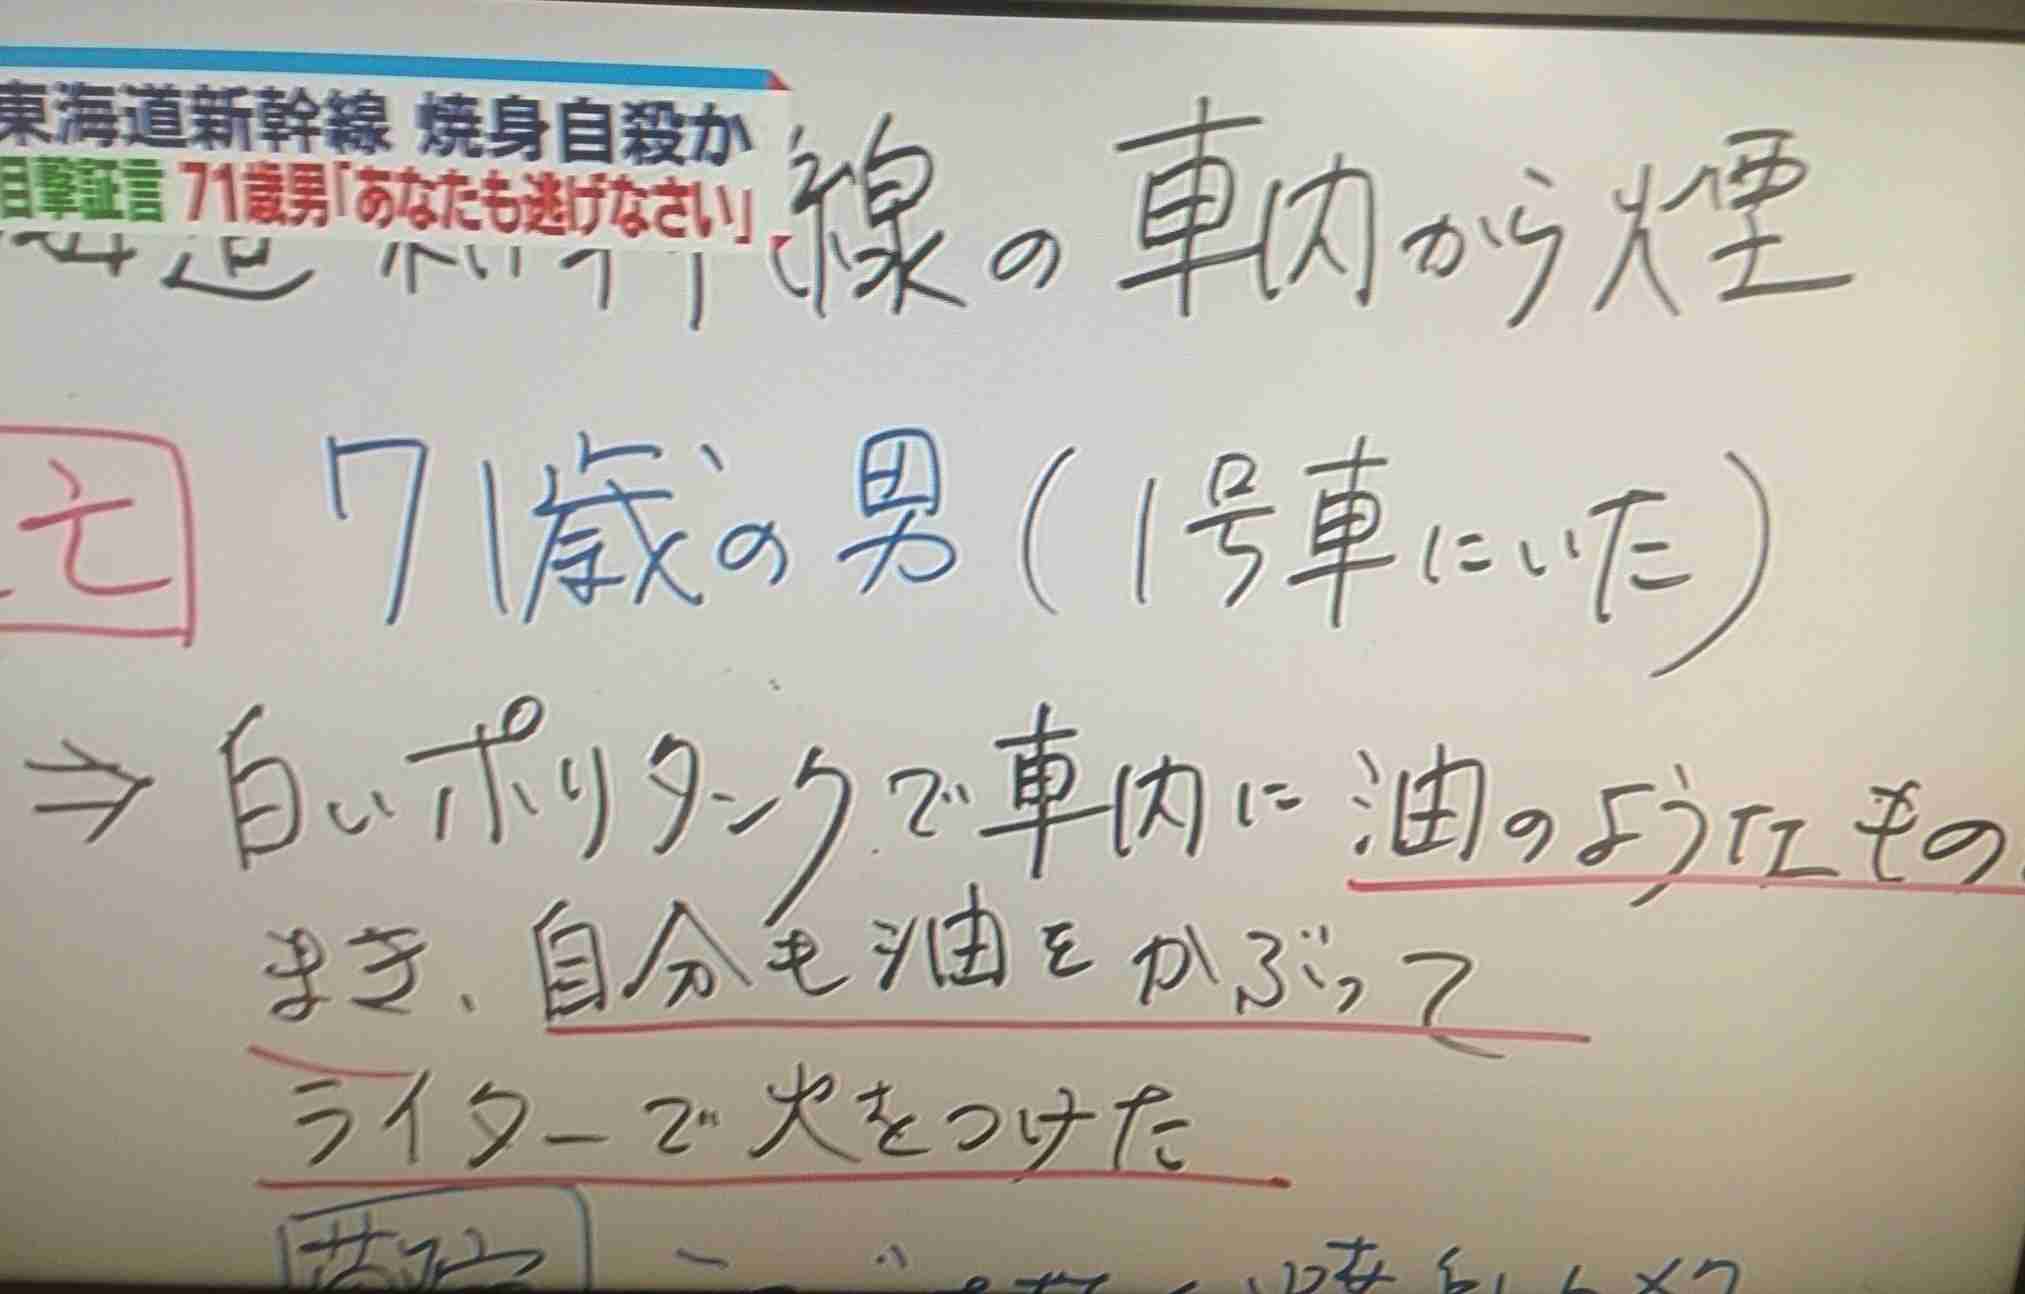 東海道新幹線 焼身自殺か
目撃証言 71歳男「あなたも逃げなさい」
線の車内から煙
亡 71歳の男(1号車にいた)
⇒ 白いポリタンクで車内に油のようなもの
まき、自分も油をかぶって
ライターで火をつけた